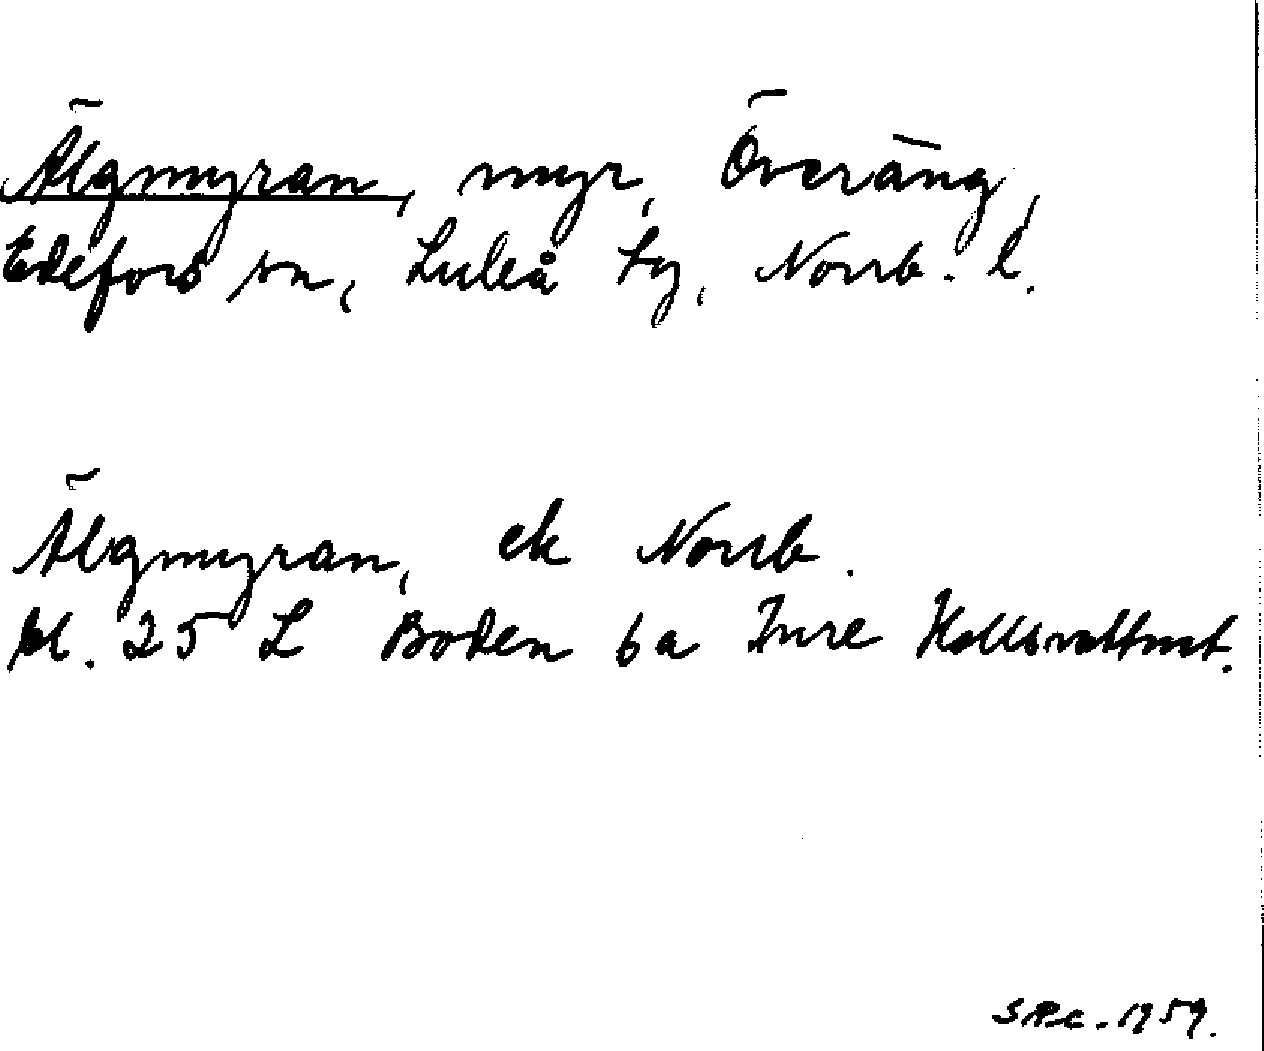 Älgmyran, myr, Överäng,
Edefors sn, Luleå tg, Norrb. l.
Älgmyran, ek Norrb.
bl. 25 L Boden 6a Inre
S.R:c. 1959.